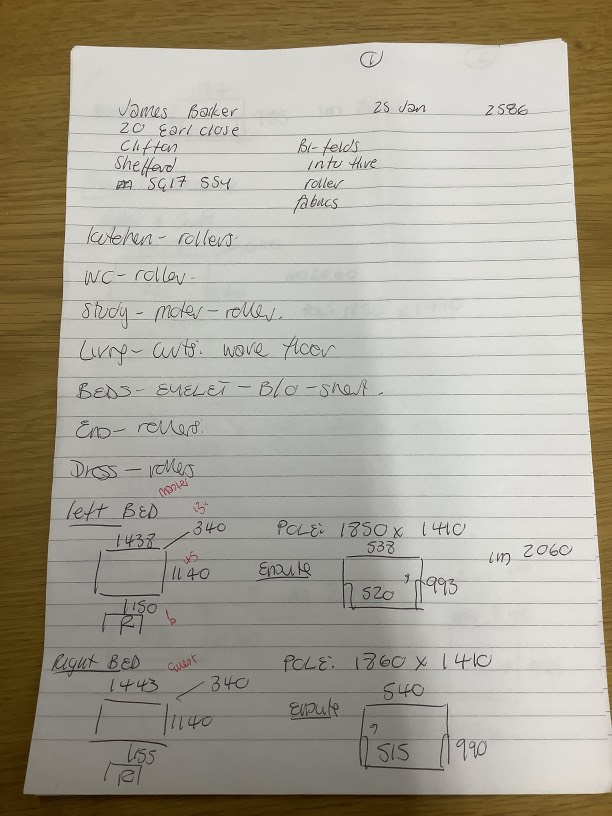 1
James Barker 25 Jan 2586
20 Earl close
Clifton Bi-folds
Shefford into five
SG17 5SY roller
fabrics
Kitchen - rollers
WC - roller.
Study - motor - roller.
Living - curts. wave floor
BEDS - EYELET - B/O - short.
Ens - rollers.
Dress - rollers
left BED master
1438 340
1140
1150
R
POLE: 1850 x 1410
Ensuite
538
520 993
2060
Right BED guest
1443 340
1140
1155
R
POLE: 1860 x 1410
Ensuite
540
515 990